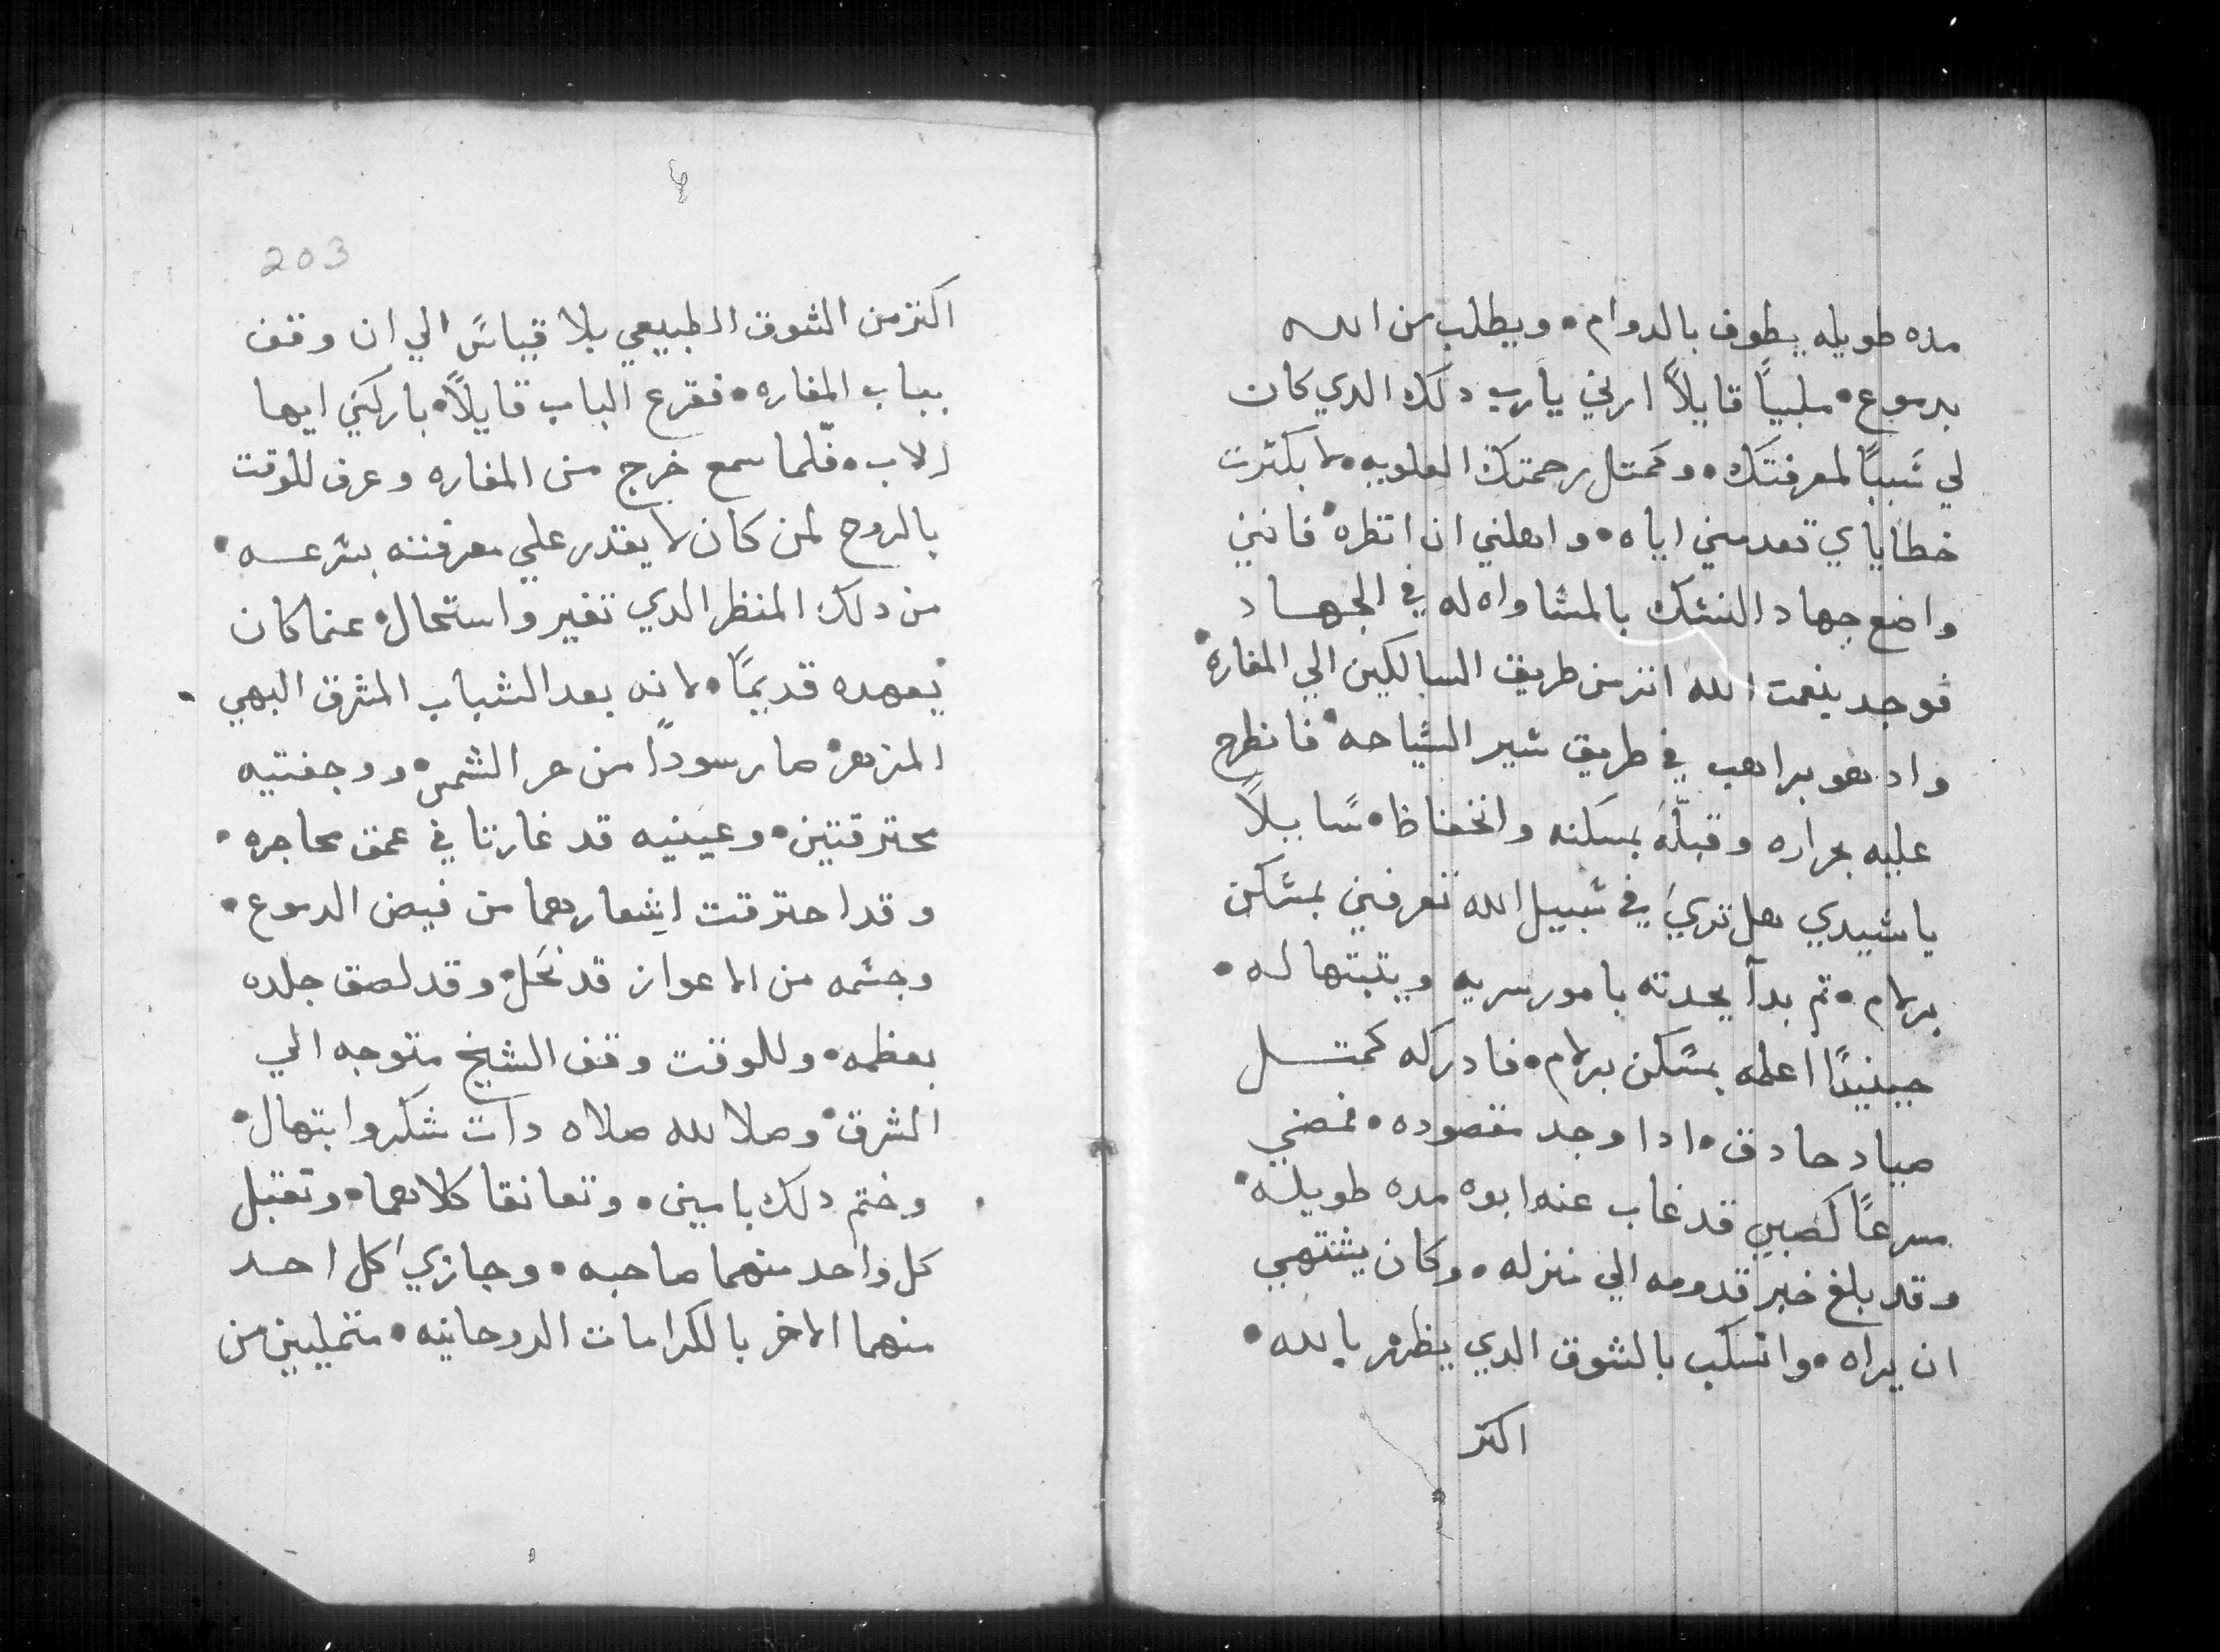 مده طويله يطوف بالدوام • ويطلب من الله
بدموع • ملبياً قايلاً ارني يارب دلك الدي كان
لي شبباً لمعرفتك • وكمتل رحمتك العلويه • لا بكثرت
خطاياي تعدمني اياه • واهلني ان انظره • فانني
واضع جهاد النشك بالمشاواه له في الجهاد
فوجد بنعمت الله اثر من طريق السالكين الي المغاره •
واد هو براهب في طريق شير الشياحه • فانطرح
عليه بحراره وقبله بمسكنه وانخفاظ • سايلاً
ياشيدي هل تري في شبيل الله تعرفني بمشكن
برلام • تم بدآ يحدته بامور سريه ويتبتها له •
حينيداً اعلمه بمسكن برلام • فادركه كمتل
صياد حادق • ادا وجد مقصوده • فمضي
مسرعاً كصبي قد غاب عنه ابوه مده طويله •
وقد بلغ خبر قدومه الي منزله • وكان يشتهي
ان يراه • وانسكب بالشوق الدي يظرم بالله •
اكتر
203
اكتر من الشوق الطبيعي بلا قياس الي ان وقف
بباب المغاره • فقرع الباب قايلاً • باركني ايها
الاب • فلما سمع خرج من المغاره وعرف للوقت
بالروح لمن كان لا يقدر علي معرفته بشرعه •
من دلك المنظر الدي تغير واستحال • عنما كان
يعهده قديماً • لانه بعد الشباب المشرق البهي •
المزهر • صار سوداً من حر الشمس • ووجنتيه
محترقتين • وعينيه قد غارتا في عمق محاجره •
وقد احترقت اشعارهما من فيض الدموع •
وجشمه من الاعواز قد نحل • وقد لصق جلده
بعظمه • وللوقت وقف الشيخ متوجه الي
الشرق • وصلا لله صلاه دات شكر وابتهال •
وختم دلك بامين • وتعانقا كلاهما • وتقبل
كل واحد منهما صاحبه • وجازي كل احد
منهما الاخر بالكرامات الروحانيه • متمليين من